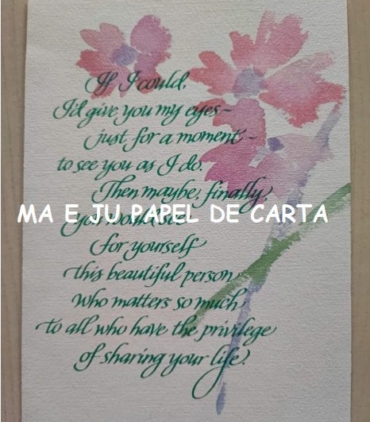 If I could,
I'd give you my eyes~
just for a moment~
to see you as I do.
Then maybe, finally
MA E JU PAPEL DE CARTA
for yourself
this beautiful person
who matters so much
to all who have the privilege
of sharing your life.